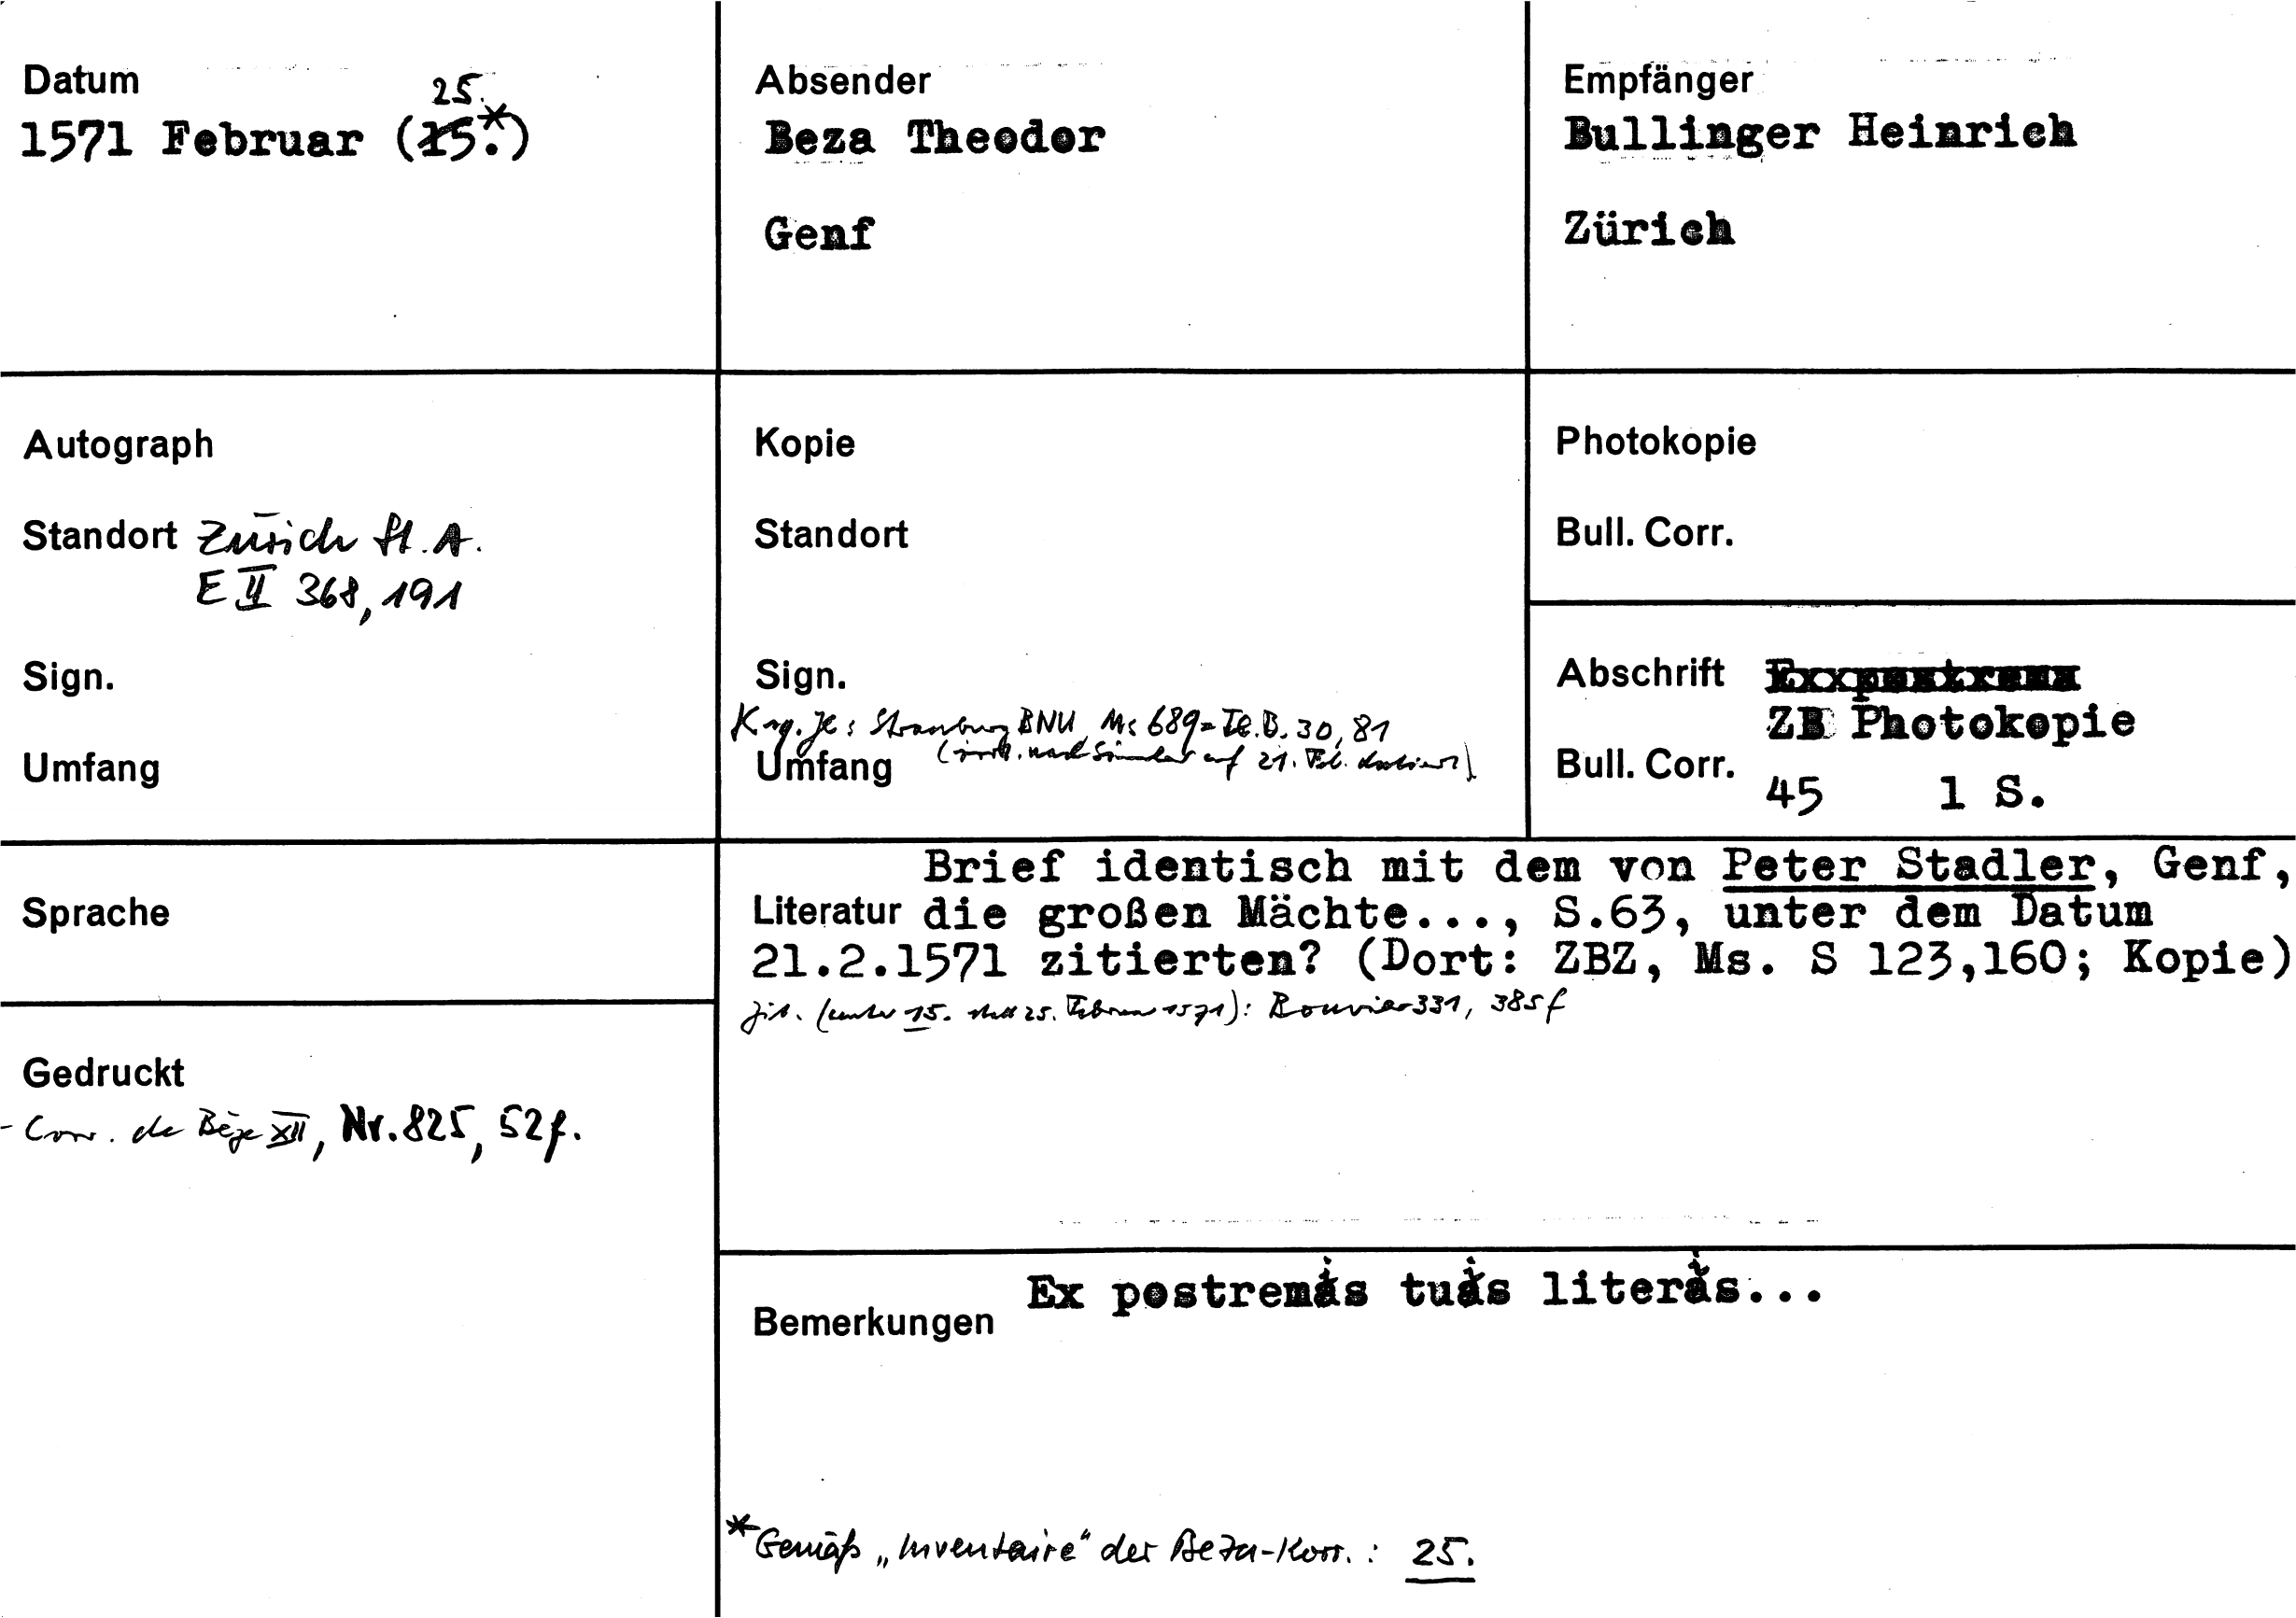 Datum
25.
1571 Februar (15.*)
Absender
Beza Theodor
Genf
Empfänger
Bullinger Heinrich
Zürich
Autograph
Standort Zürich St. A.
E II 368, 191
Sign.
Umfang
Kopie
Standort
Sign.
Strassburg BNU, Ms 689 = 30, 81
Umfang (irrt. nach Simler auf 21. Feb. datiert)
Photokopie
Bull. Corr.
Abschrift
ZB Photokopie
Bull. Corr. 45 1 S.
Sprache
Brief identisch mit dem von Peter Stadler, Genf,
Literatur die großen Mächte..., S.63, unter dem Datum
21.2.1571 zitierten? (Dort: ZBZ, Ms. S 123,160; Kopie)
zit. (unter 15. statt 25. Februar 1571): Bouvier 331, 385f
Gedruckt
- Corr. de Bèze XII, Nr. 825, 52f.
Bemerkungen Ex postremis tuis literis...
*Gemäß „Inventaire“ der Beza-Korr.: 25.